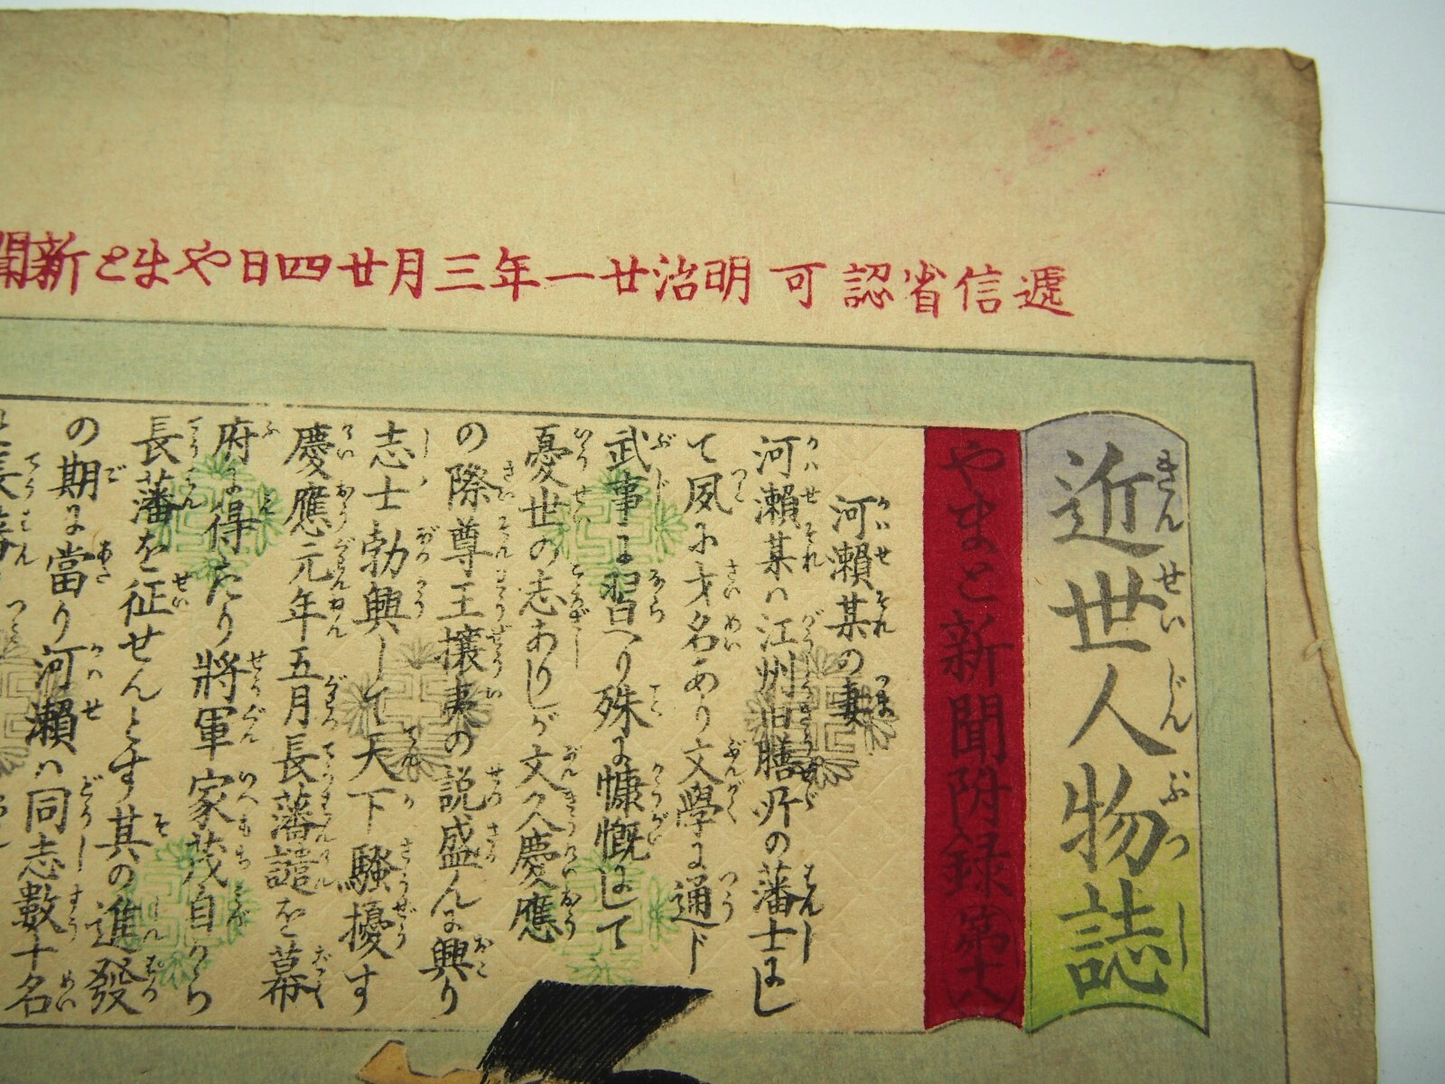 遞信省認可 明治廿一年三月廿四日やまと新聞
近世人物誌
きんせいじんぶつし
やまと新聞附録第十八
河瀬某の妻
河瀬某ハ江州旧膳所の藩士にし
て夙に才名あり文學に通ド
武事に習へり殊に慷慨にして
憂世の志ありしが文久慶應
の際尊王攘夷の説盛んに興り
志士勃興して天下騒擾す
慶應元年五月長藩譴を幕
府に得たり將軍家茂自から
長藩を征せんとす其の進發
の期に當り河瀬ハ同志數十名